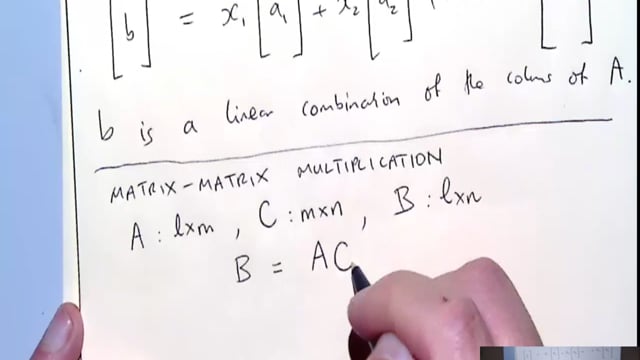 [b] = x₁ [a₁] + x₂ [a₂]
b is a linear combination of the colms of A.
MATRIX-MATRIX MULTIPLICATION
A : l×m , C : m×n , B : l×n
B = AC